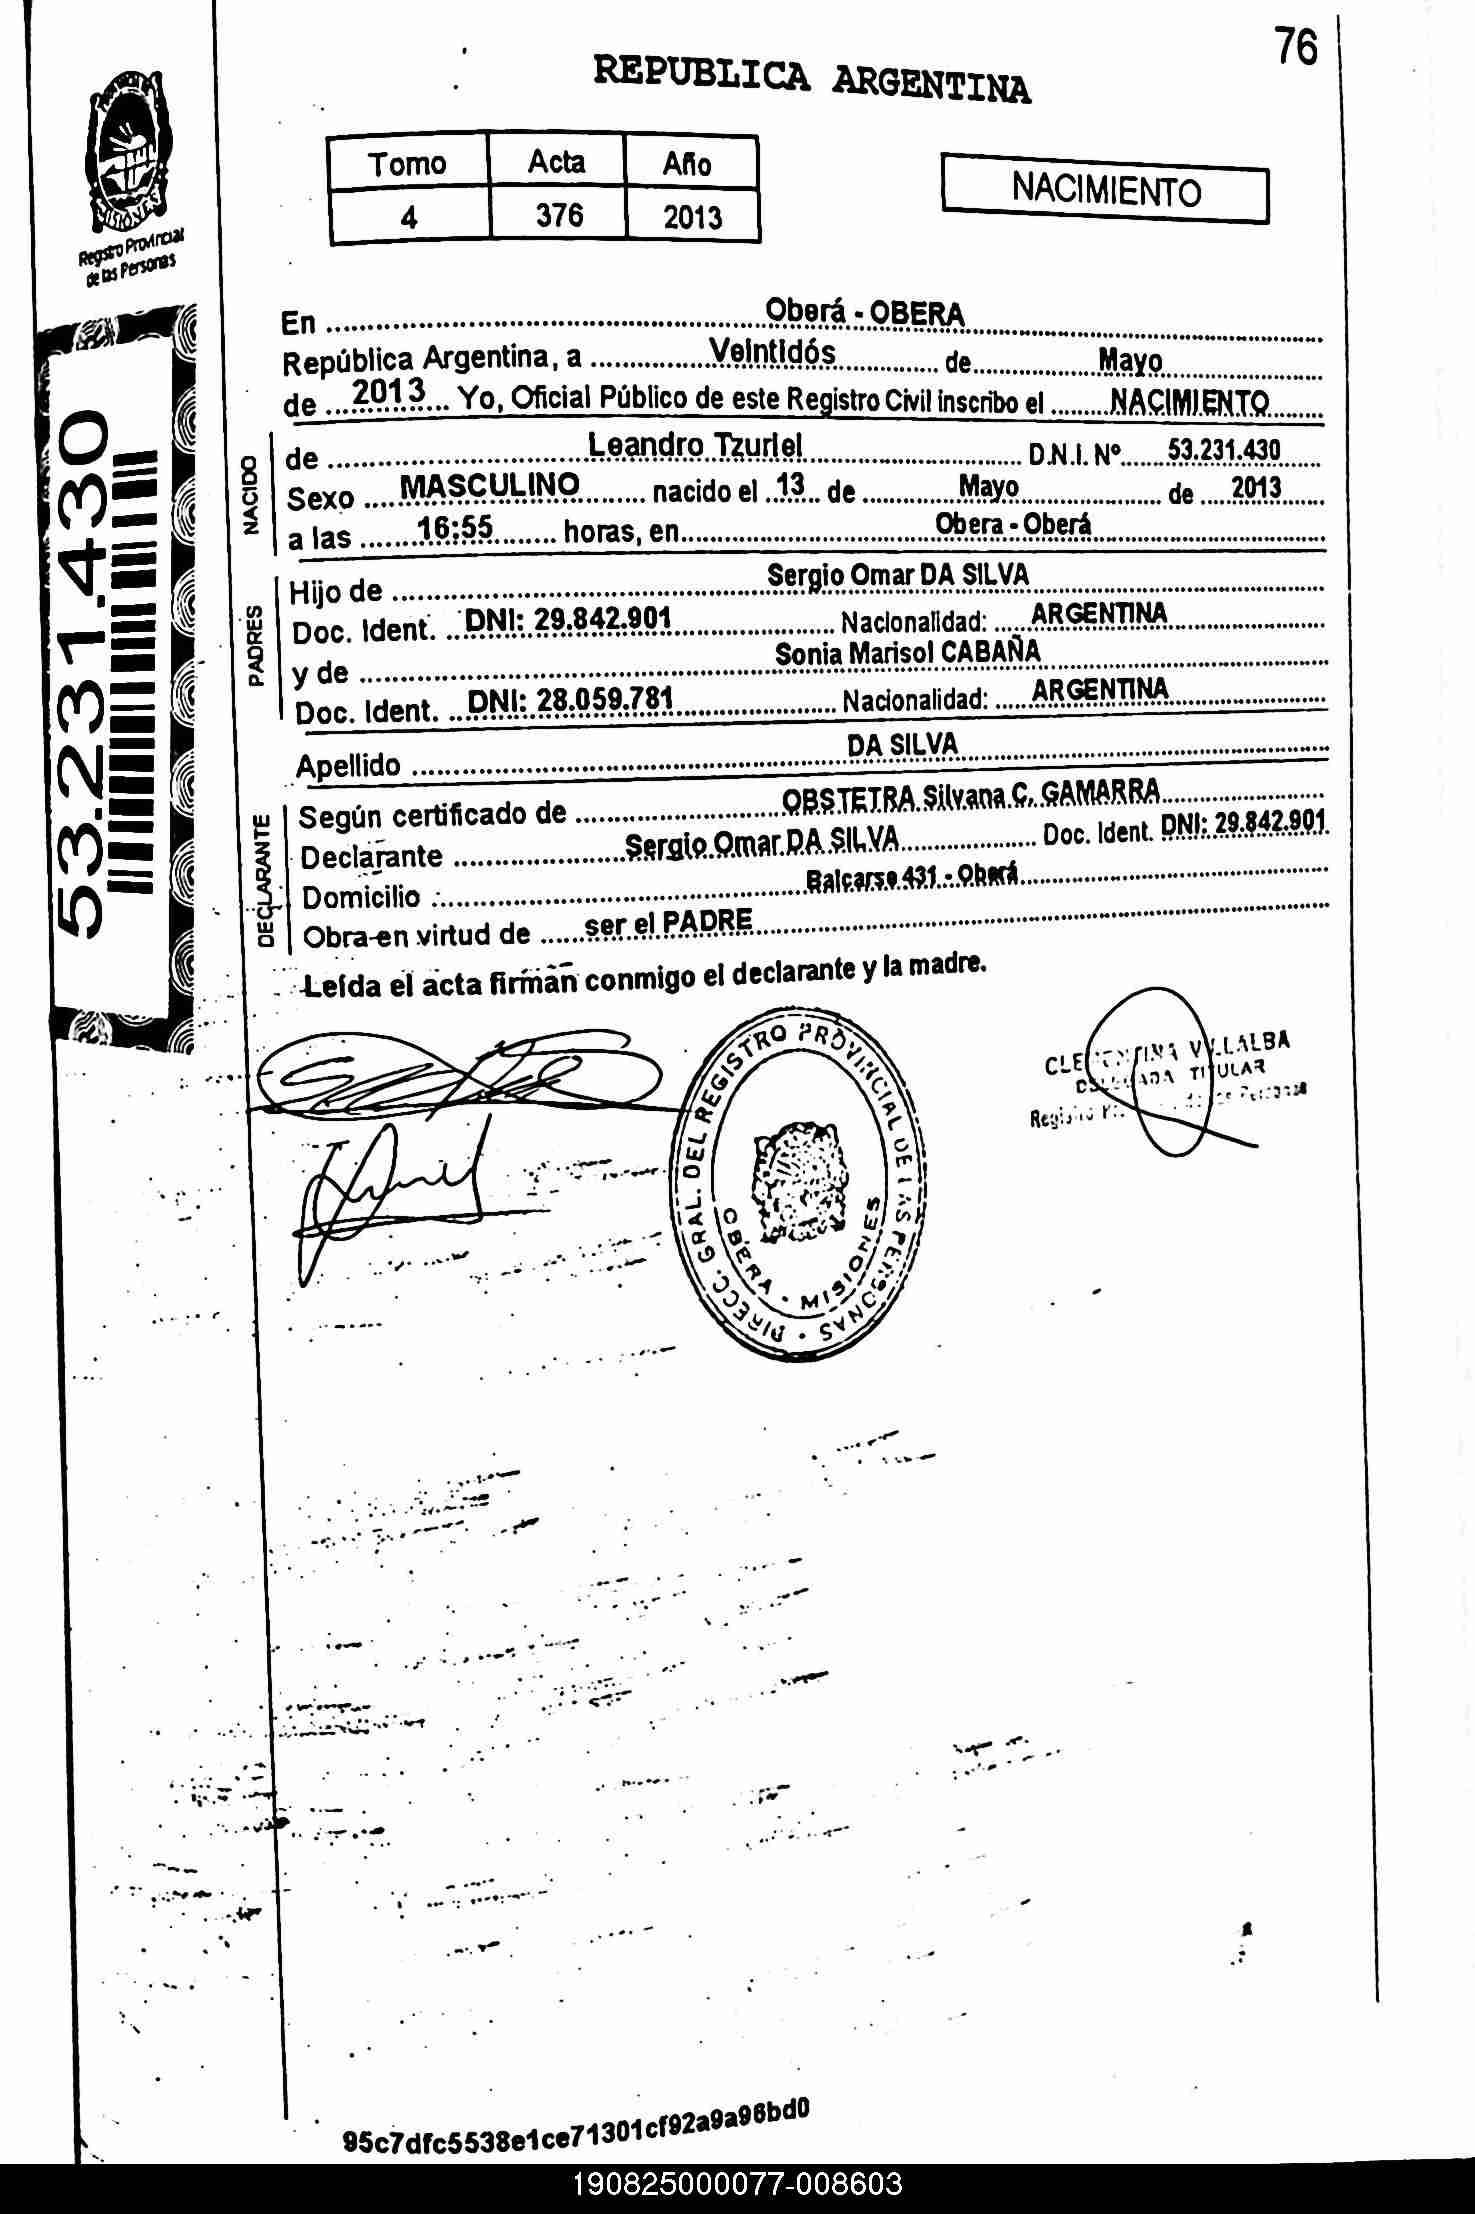 76
REPUBLICA ARGENTINA
Tomo Acta Año
4 376 2013
NACIMIENTO
MISIONES
Registro Provincial
de las Personas
53.231.430
En Oberá - OBERA
República Argentina, a Veintidós de Mayo
de 2013 Yo, Oficial Público de este Registro Civil inscribo el NACIMIENTO
NACIDO
de Leandro Tzuriel D.N.I. Nº 53.231.430
Sexo MASCULINO nacido el 13 de Mayo de 2013
a las 16:55 horas, en Obera - Oberá
PADRES
Hijo de Sergio Omar DA SILVA
Doc. Ident. DNI: 29.842.901 Nacionalidad: ARGENTINA
y de Sonia Marisol CABAÑA
Doc. Ident. DNI: 28.059.781 Nacionalidad: ARGENTINA
Apellido DA SILVA
DECLARANTE
Según certificado de OBSTETRA Silvana C. GAMARRA
Declarante Sergio Omar DA SILVA Doc. Ident. DNI: 29.842.901
Domicilio Balcarse 431 - Oberá
Obra en virtud de ser el PADRE
Leída el acta firman conmigo el declarante y la madre.
DIRECC. GRAL. DEL REGISTRO PROVINCIAL DE LAS PERSONAS
OBERA - MISIONES
CLEMENTINA VILLALBA
DELEGADA TITULAR
Registro de las Personas
95c7dfc5538e1ce71301cf92a9a96bd0
190825000077-008603